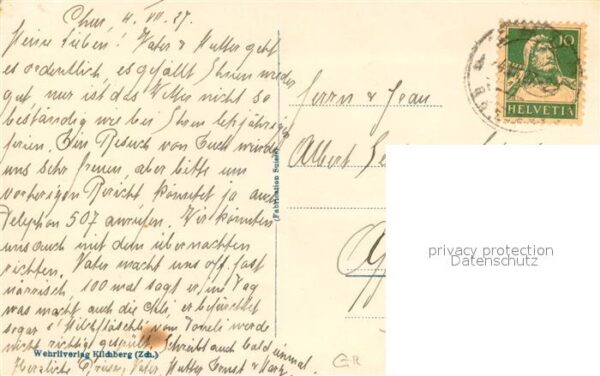 Chur, 4. VII. 27.
Meine Lieben! Vater & Mutter geht
es ordentlich, es gefällt Ihnen wieder
gut nur ist das Wetter nicht so
beständig wie bei Ihren letztjährigen
ferien. Ein Besuch von Euch würde
uns sehr freuen, aber bitte um
vorherigen Bericht könntet ja auch
Telephon 507 anrufen. Wir könnten
uns auch mit dem übernachten
richten. Vater macht uns oft fast
närrisch, 100 mal sagt er im Tag
was macht auch die Chli, er befürchtet
sogar s' Milchfläschli vom Voneli werde
nicht richtig gefüllt. Schreibt auch bald einmal.
Herzliche Grüsse, Vater, Mutter Ernst &
Wehrliverlag Kilchberg (Zch.)
(Fabrication Suisse)
Herrn & Frau
Albert
10
HELVETIA
privacy protection
Datenschutz